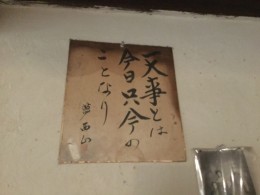 一大事とは
今日只今の
ことなり